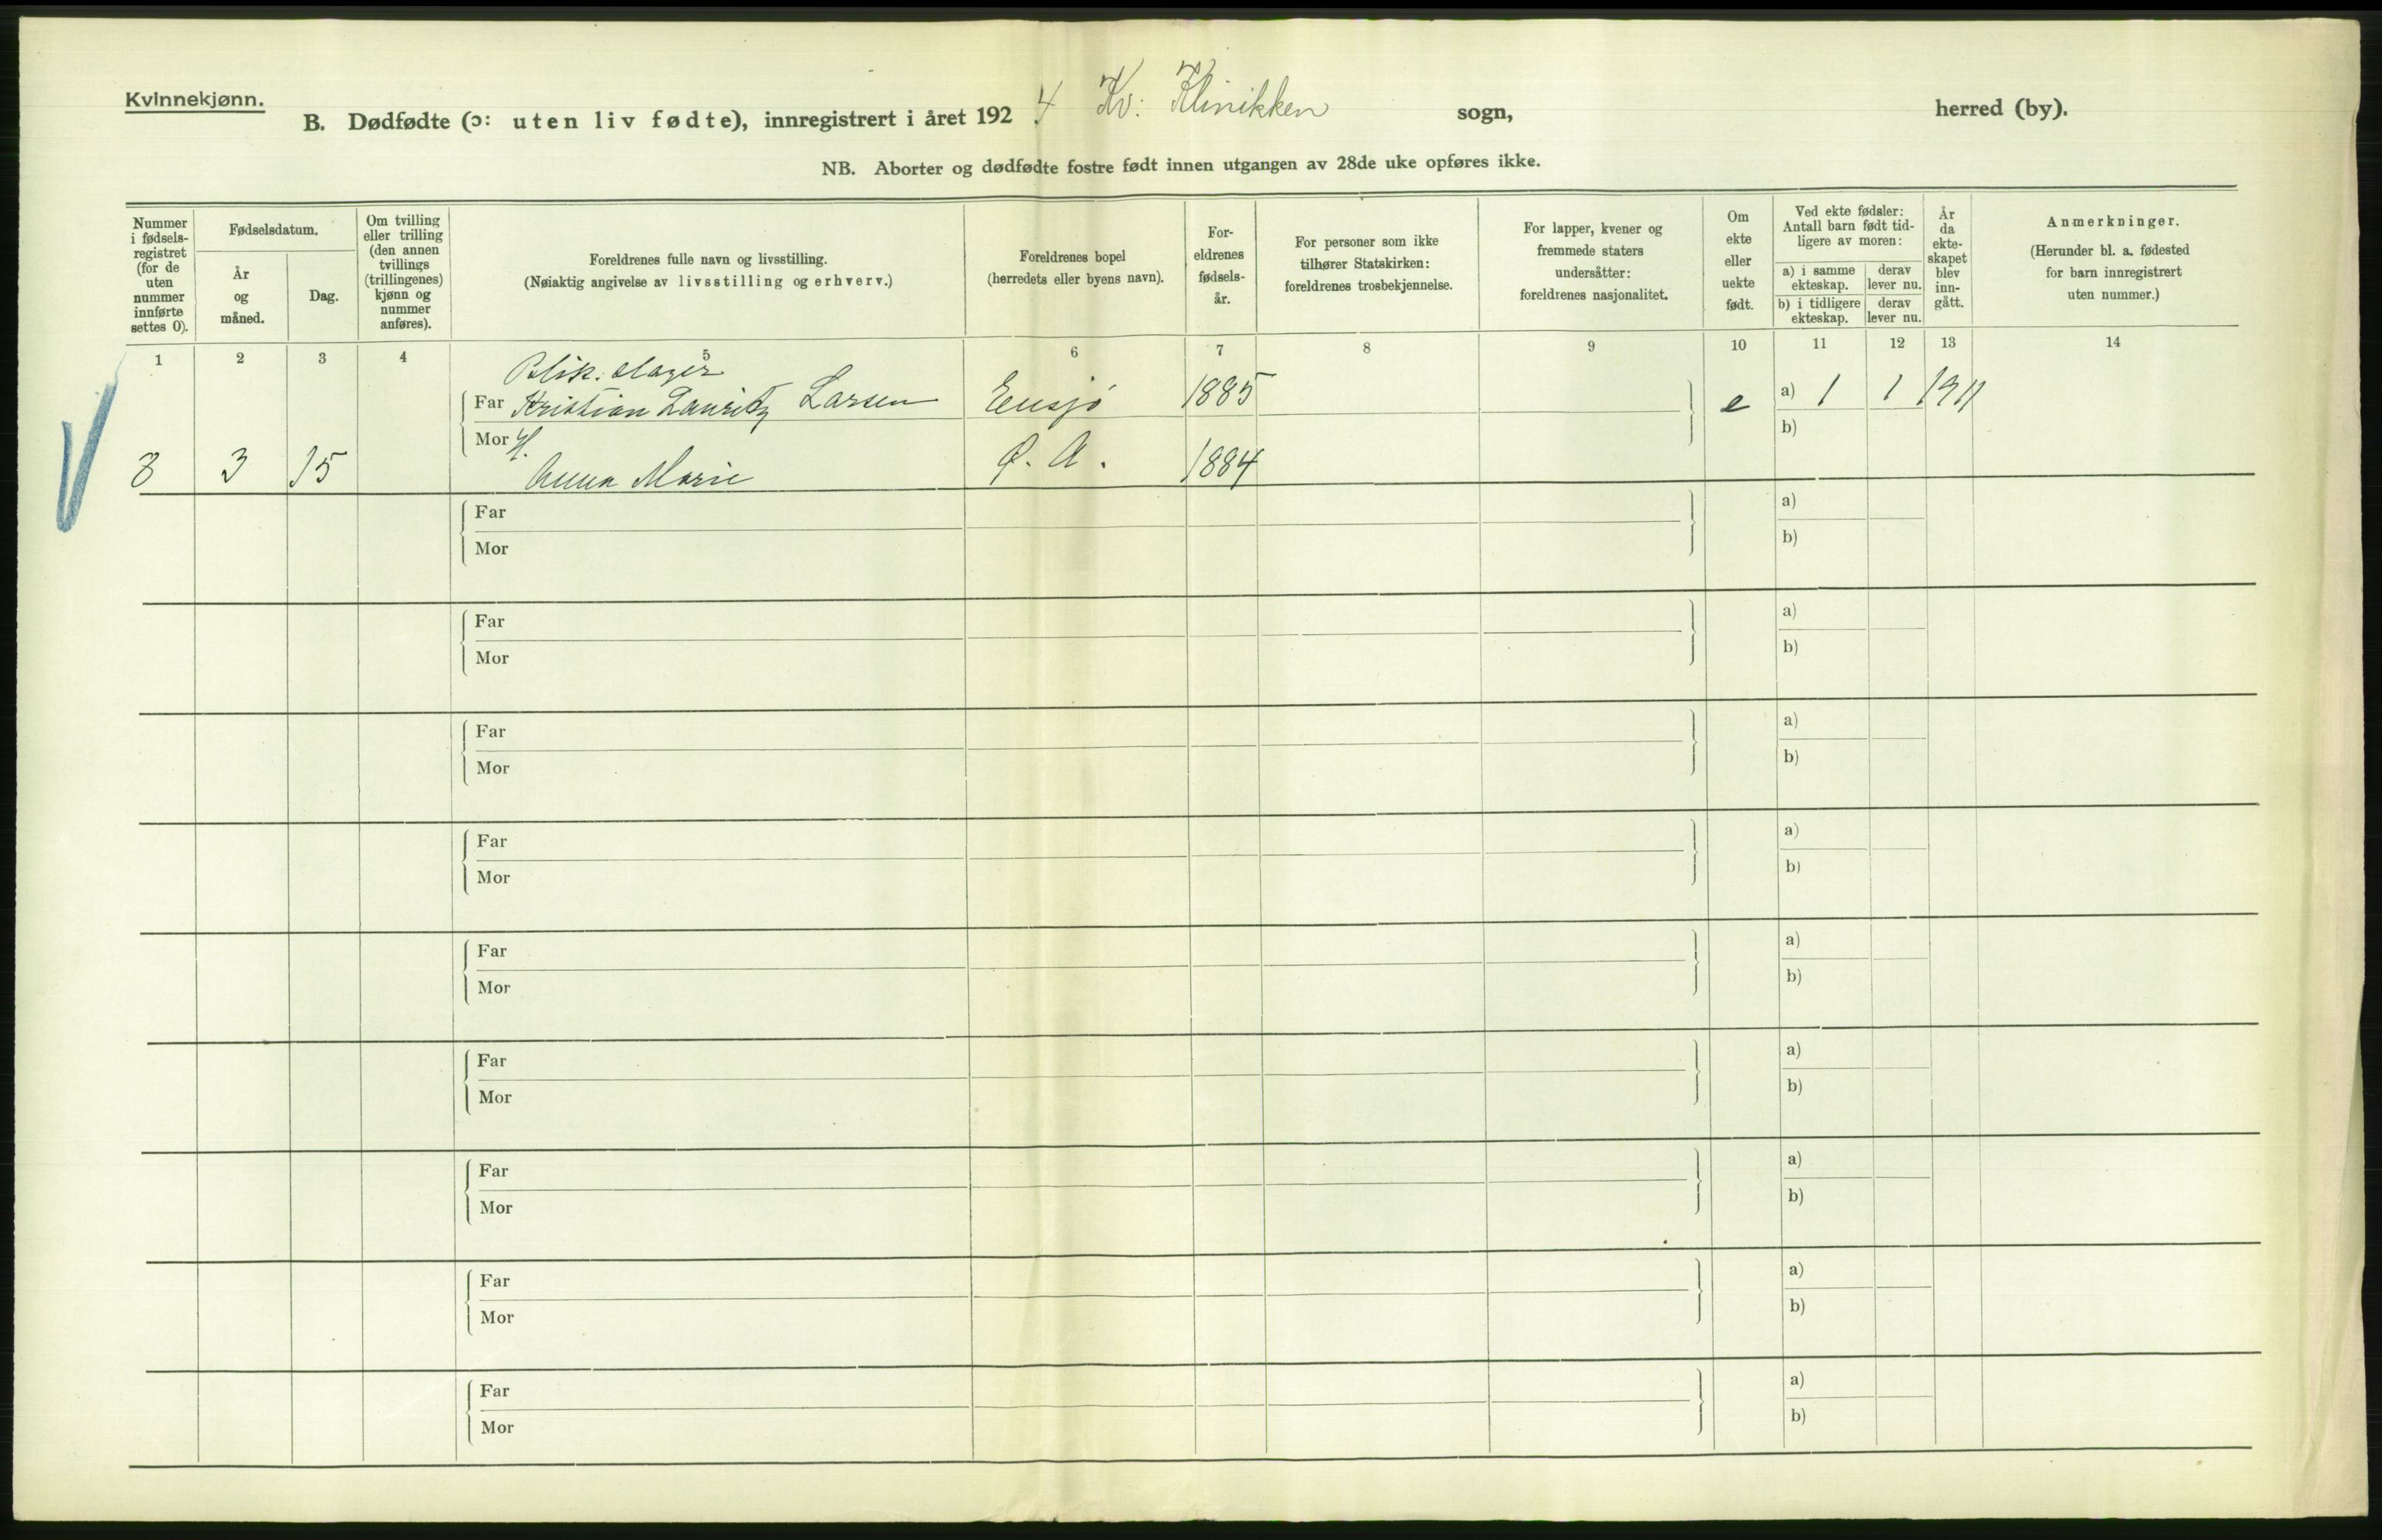 Kvinnekjønn.
B. Dødfødte (ɔ: uten liv fødte), innregistrert i året 1924 Kv: Klinikken sogn, herred (by).
NB. Aborter og dødfødte fostre født innen utgangen av 28de uke opføres ikke.
Nummer i fødsels-registret (for de uten nummer innførte settes 0).
Fødselsdatum.
År og måned.
Dag.
Om tvilling eller trilling (den annen tvillings (trillingenes) kjønn og nummer anføres).
Foreldrenes fulle navn og livsstilling.
(Nøiaktig angivelse av livsstilling og erhverv.)
Foreldrenes bopel
(herredets eller byens navn).
For-eldrenes fødsels-år.
For personer som ikke tilhører Statskirken: foreldrenes trosbekjennelse.
For lapper, kvener og fremmede staters undersåtter: foreldrenes nasjonalitet.
Om ekte eller uekte født.
Ved ekte fødsler: Antall barn født tid-ligere av moren:
a) i samme ekteskap.
derav lever nu.
b) i tidligere ekteskap.
derav lever nu.
År da ekte-skapet blev inn-gått.
Anmerkninger.
(Herunder bl. a. fødested for barn innregistrert uten nummer.)
1 2 3 4 5 6 7 8 9 10 11 12 13 14
Blik. slager
Far Kristian Lauritz Larsen Ensjø 1885 e a) 1 1 1911
Mor H. b)
8 3 15 Anna Marie Ø. A. 1884
Far a)
Mor b)
Far a)
Mor b)
Far a)
Mor b)
Far a)
Mor b)
Far a)
Mor b)
Far a)
Mor b)
Far a)
Mor b)
Far a)
Mor b)
Far a)
Mor b)